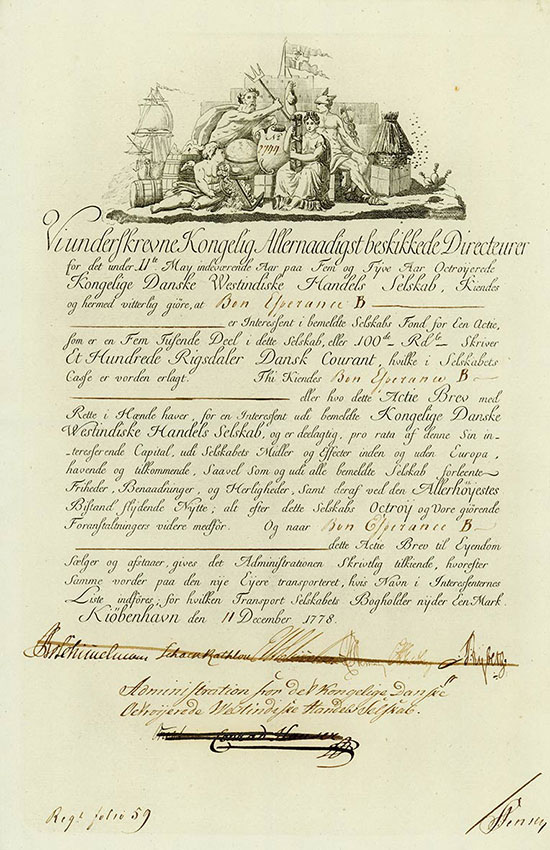 1799
Vi underskrevne Kongelig Allernaadigst beskikkede Directeurer
for det under 11te May indeværende Aar paa Fem og Tyve Aar Octroyerede
Kongelige Danske Westindiske Handels Selskab, Kiendes
og hermed vitterlig giöre, at Bon Esperance B
er Interessent i bemeldte Selskabs Fond for Een Actie,
som er en Fem Tusende Deel i dette Selskab, eller 100de Rdlr Skriver
Et Hundrede Rigsdaler Dansk Courant, hvilke i Selskabets
Casse er vorden erlagt. Thi Kiendes Bon Esperance B
eller hvo dette Actie Brev med
Rette i Hænde haver, for en Interessent udi bemeldte Kongelige Danske
Westindiske Handels Selskab, og er deelagtig, pro rata af denne Sin in-
teresserende Capital, udi Selskabets Midler og Effecter inden og uden Europa,
havende og tilkommende, Saavel Som og udi alle bemeldte Selskab forleente
Friheder, Benaadninger, og Herligheder, Samt deraf ved den Allerhöyestes
Bistand flydende Nytte; alt efter dette Selskabs Octroy og Vore giörende
Foranstaltningers videre medför. Og naar Bon Esperance B
dette Actie Brev til Eyendom
Sælger og afstaaer, gives det Administrationen Skrivtlig tilkiende, hvorefter
Samme vorder paa den nye Ejere transporteret, hvis Navn i Interessenternes
Liste indföres; for hvilken Transport Selskabets Bogholder nyder Een Mark.
Kiöbenhavn den 11 December 1778.
Schimmelmann Schack Rathlou Ryberg
Administration for det Kongelige Danske
Octroyerede Westindiske Handels Selskab.
Regt folio 59